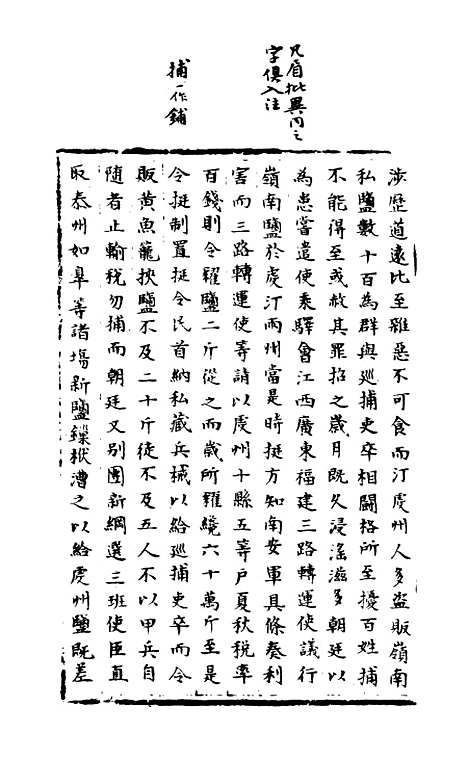 凡眉批異同之
字俱入注
捕一作鋪
涉歷道遠比至雖惡不可食而汀虔州人多盜販嶺南
私鹽數十百為群與巡捕吏卒相鬪格所至擾百姓捕
不能得至或赦其罪招之歲月既久浸滛滋多朝廷以
為患嘗遣使乘驛會江西廣東福建三路轉運使議行
嶺南鹽於虔汀兩州當是時挺方知南安軍具條奏利
害而三路轉運使等請以虔州十縣五等戶夏秋稅率
百錢則令糴鹽二斤從之而歲所糴纔六十萬斤至是
令挺制置挺令民首納私藏兵械以給巡捕吏卒而令
販黃魚籠挾鹽不及二十斤徒不及五人不以甲兵自
隨者止輸稅勿捕而朝廷又別團新綱選三班使臣直
取泰州如臯等諸塲新鹽鏁栿漕之以給虔州鹽既差